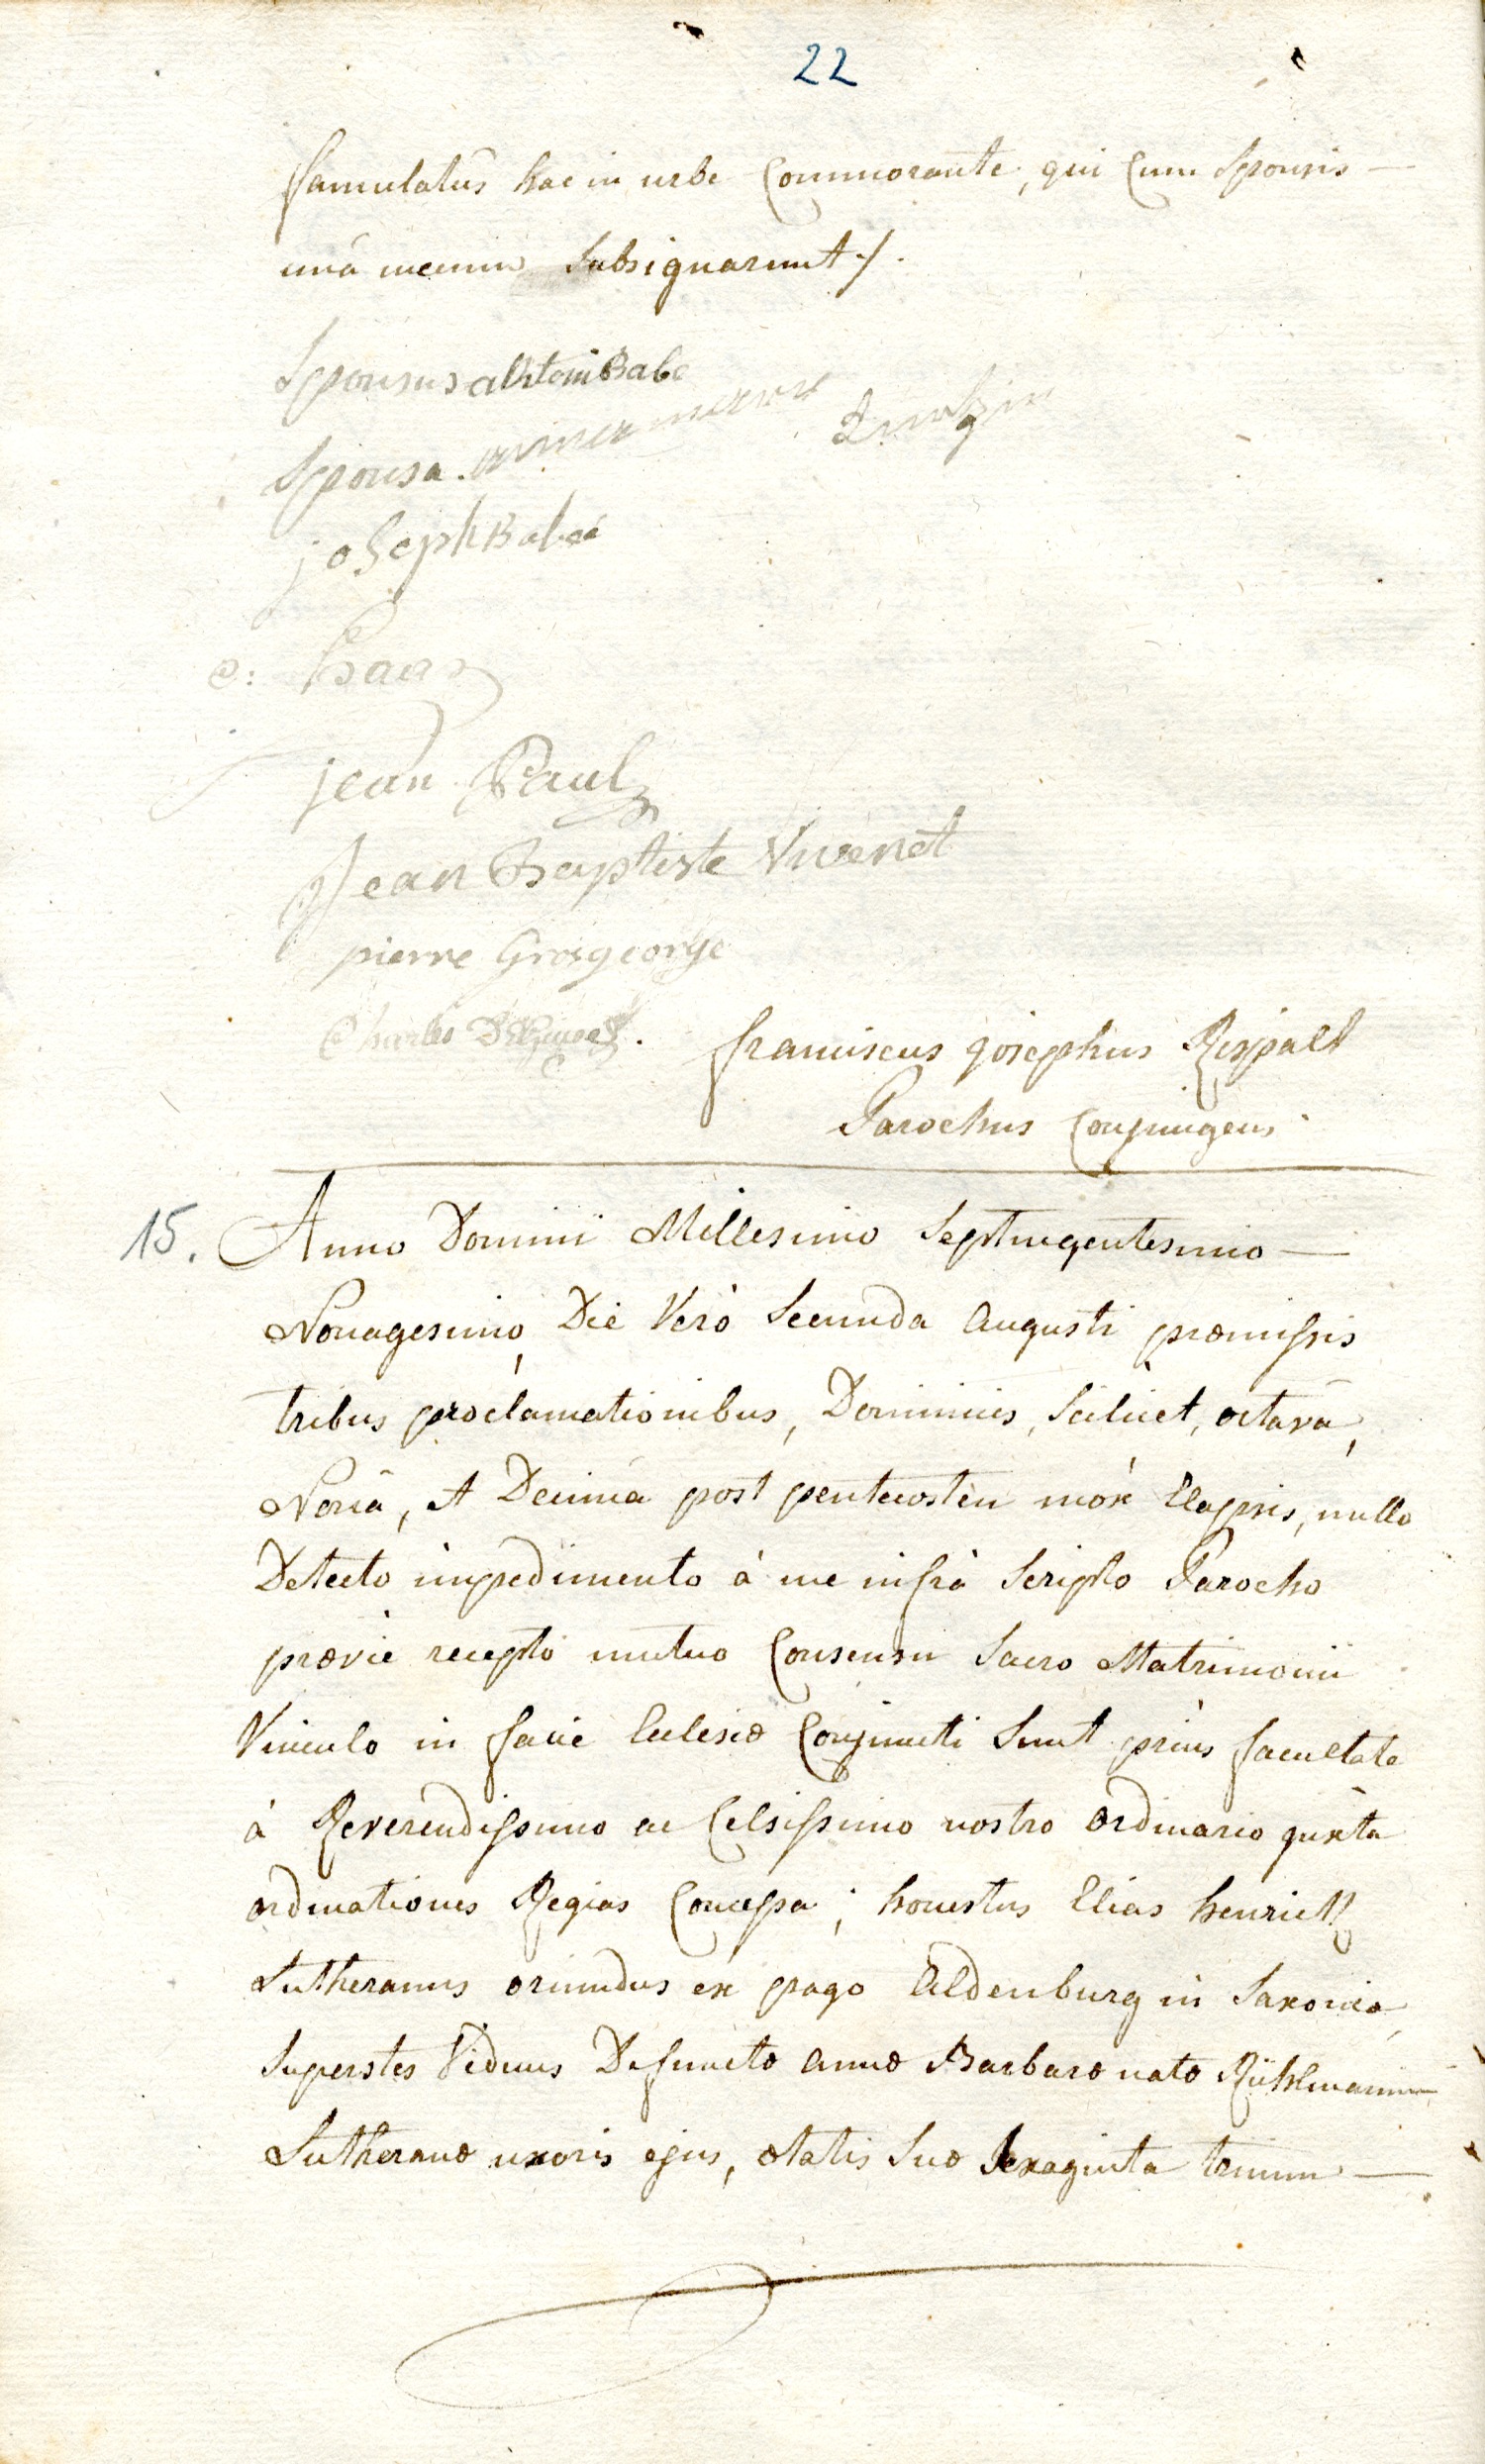 22
famulatûs hac in urbe Commorante, qui Cum Sponsis —
unâ mecum Subsignarunt ./.
Sponsus antoni Babe
Sponsa . anna maria
joseph Babeé
haas
jean Paul
Jean Baptiste Vivenot
pierre Grosgeorge
Charles
franciscus josephus Rispalt
Parochus Conjungens
15. Anno Domini Millesimo Septingentesimo —
Nonagesimo, Die Verò Secunda Augusti præmissis
tribus proclamationibus, Dominicis, Scilicet, octavâ,
Nonâ, et Decimâ post pentecosten mox Elapsis, nullo
Detecto impedimento à me infrà Scripto Parocho
prævie recepto mutuo Consensu Sacro Matrimonii
Vinculo in facie Eclesiæ Conjuncti Sunt priùs facultate
à Reverendissimo ac Celsissimo nostro ordinario juxta
ordinationes Regias Concessa ; honestus Elias henrich
Lutheranus oriundus ex pago Aldenburg in Saxonia,
Superstes Viduus Defunctæ Annæ Barbaræ natæ Rühlmannin
Lutheranæ uxoris ejus, ætatis Suæ Sexaginta trium —